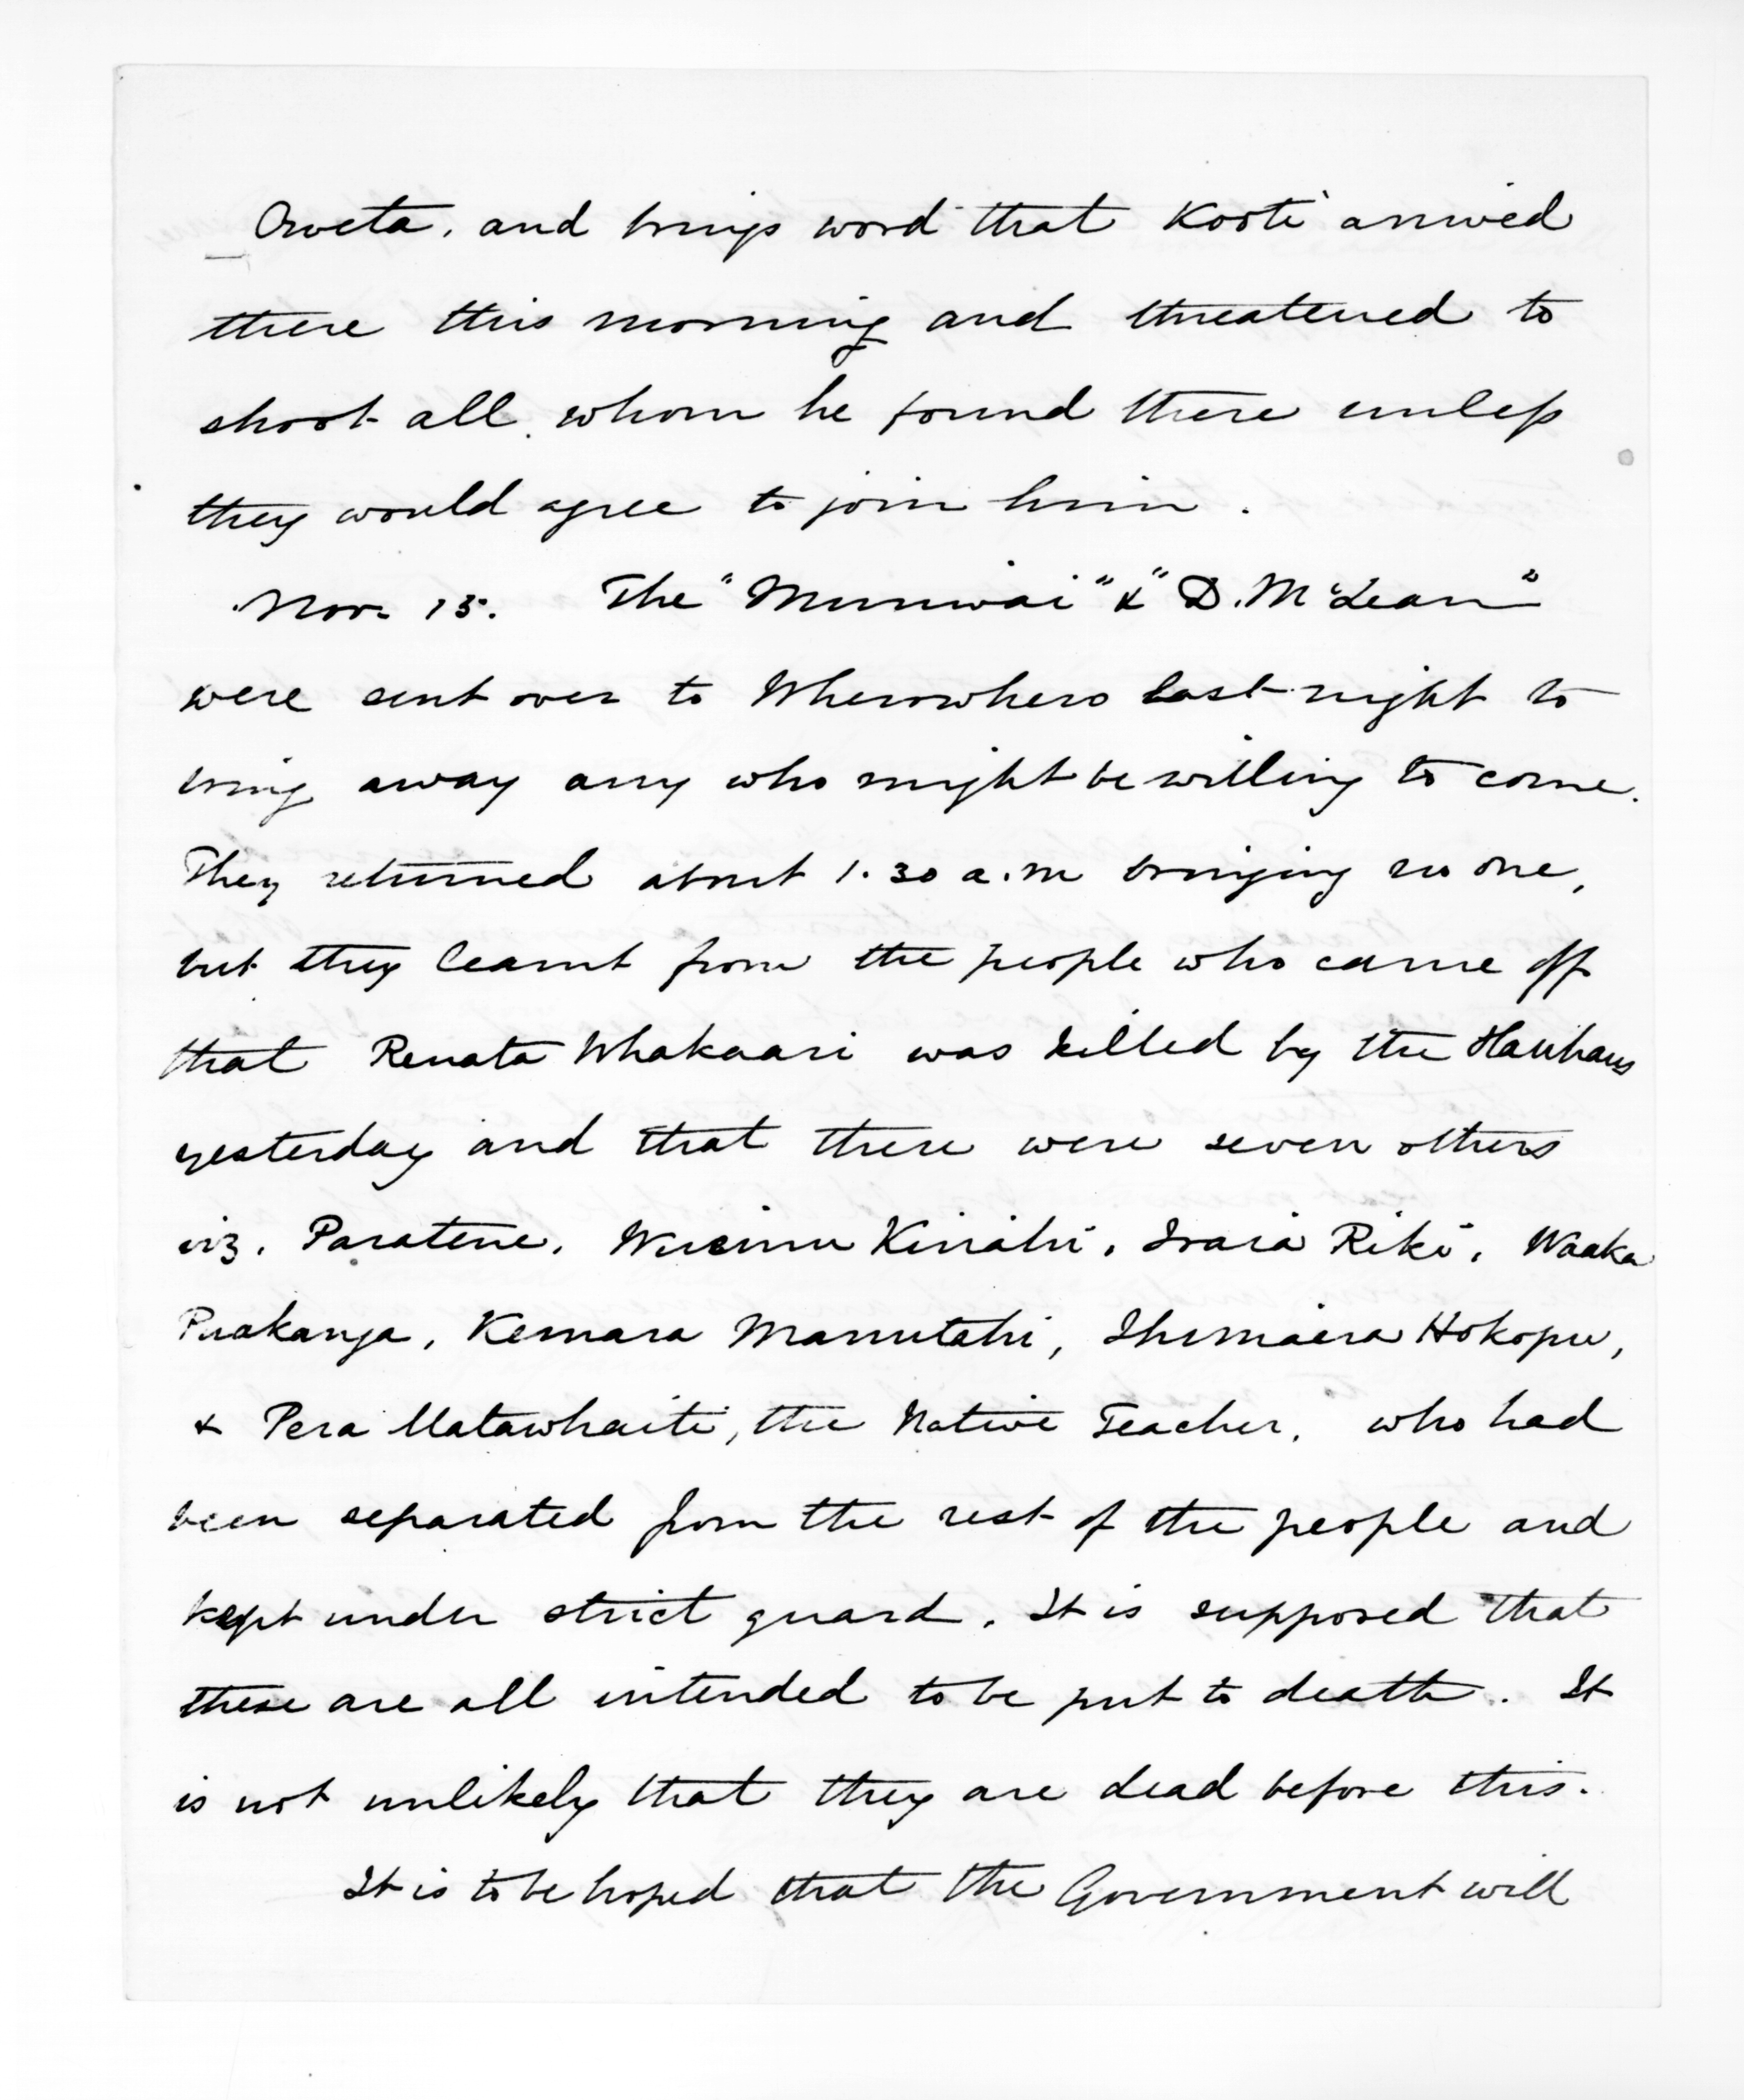 Oweta, and brings word that Kooti arrived
there this morning and threatened to
shoot all whom he found there unless
they would agree to join him.
Nov. 15. The "Muriwai" & "D. McLean"
were sent over to Wherowhero last night to
bring away any who might be willing to come.
They returned about 1.30 a.m bringing no one,
but they learnt from the people who came off
that Renata Whakaari was killed by the Hauhaus
yesterday and that there were seven others
viz. Paratene, Wiremu Kiriahi, Iraia Riki, Waaka
Puakanga, Kemara Manutahi, Ihimaera Hokopu,
& Pera Matawhaiti, the Native Teacher, who had
been separated from the rest of the people and
kept under strict guard. It is supposed that
these are all intended to be put to death. It
is not unlikely that they are dead before this.
It is to be hoped that the Government will